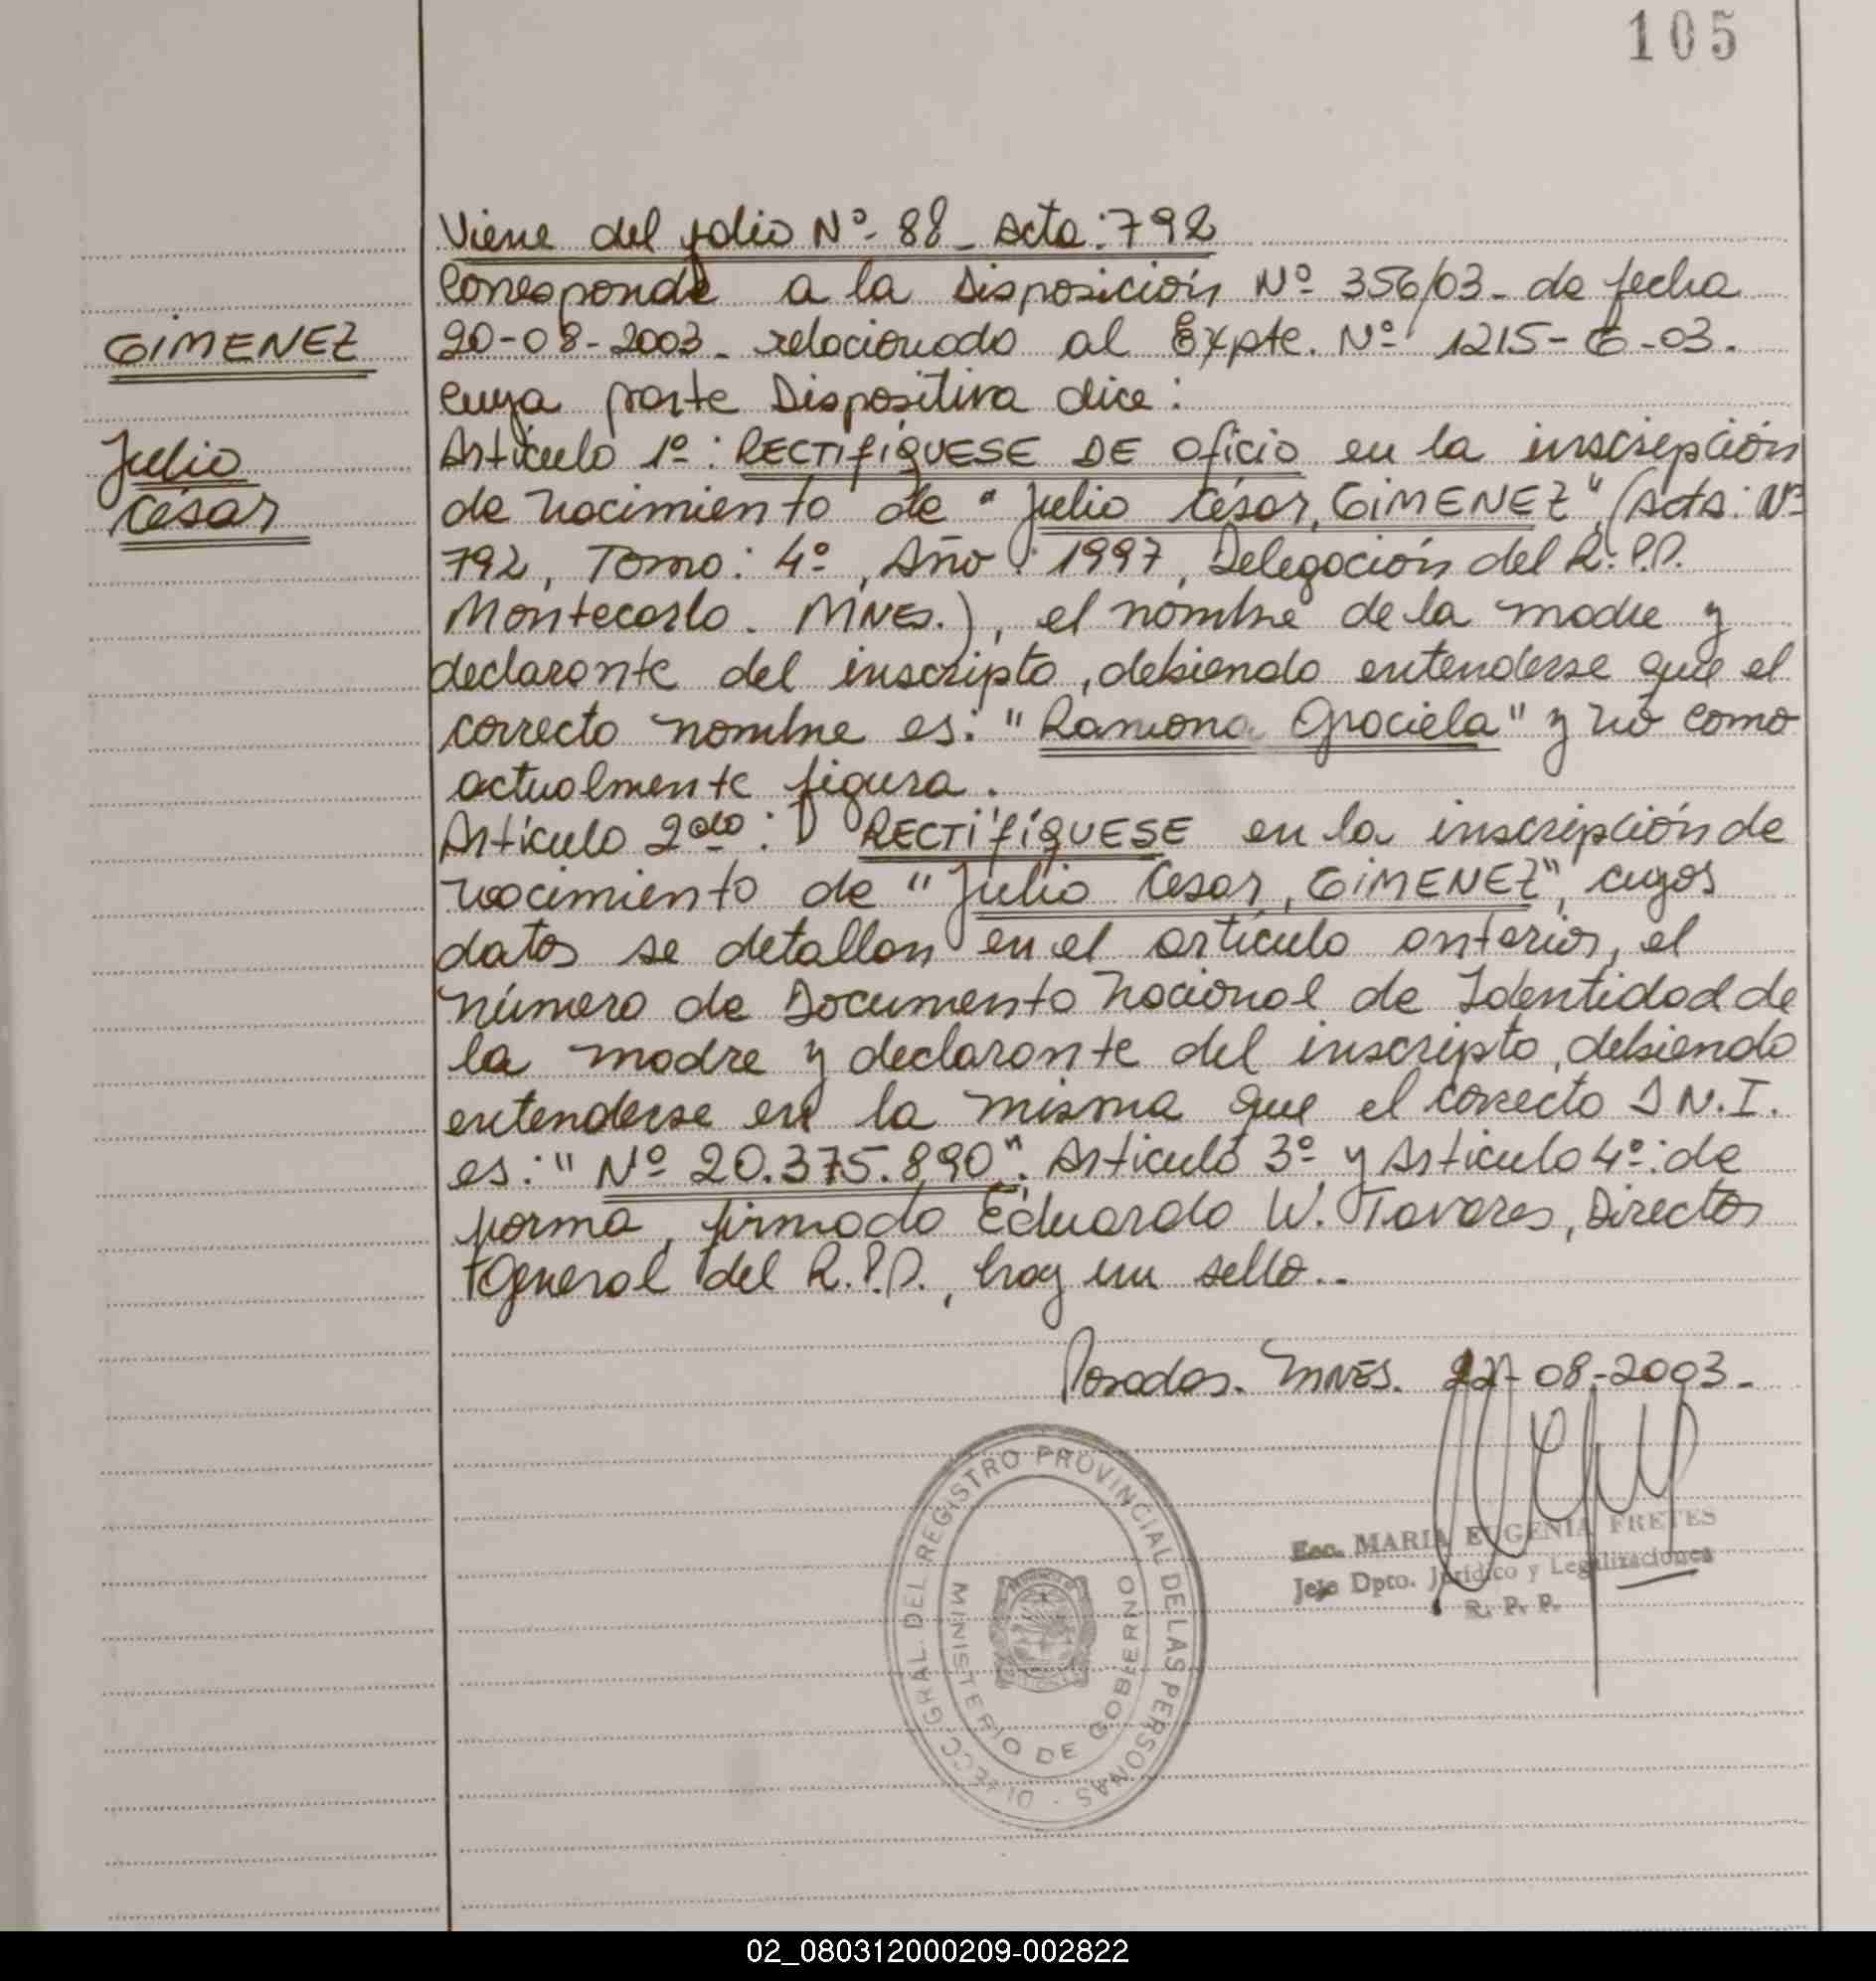 105
Viene del folio Nº 88_ Acta: 792
Corresponde a la Disposición Nº 356/03_ de fecha
20-08-2003_ relacionado al Expte. Nº 1215-G-03.
cuya parte Dispositiva dice:
GIMENEZ
Julio
César
Artículo 1º: RECTIFÍQUESE DE OFICIO en la inscripción
de nacimiento de "Julio César, GIMENEZ", (Acta: Nº
792, Tomo: 4º, Año: 1997, Delegación del R.P.P.
Montecarlo. MNES.), el nombre de la madre y
declarante del inscripto, debiendo entenderse que el
correcto nombre es: "Ramona Graciela" y no como
actualmente figura.
Artículo 2do: RECTIFÍQUESE en la inscripción de
nacimiento de "Julio Cesar, GIMENEZ", cuyos
datos se detallan en el artículo anterior, el
número de Documento Nacional de Identidad de
la madre y declarante del inscripto, debiendo
entenderse en la misma que el correcto D N.I.
es: "Nº 20.375.890". Artículo 3º y Artículo 4º: de
forma, firmado Eduardo W. Tavares, Director
General del R.P.P., hay un sello..
Posadas. MNES. 22-08-2003_
DIRECC GRAL DEL REGISTRO PROVINCIAL DE LAS PERSONAS -
MINISTERIO DE GOBIERNO
Esc. MARIA EUGENIA FRETES
Jefe Dpto. Jurídico y Legalizaciones
R. P. P.
02_080312000209-002822